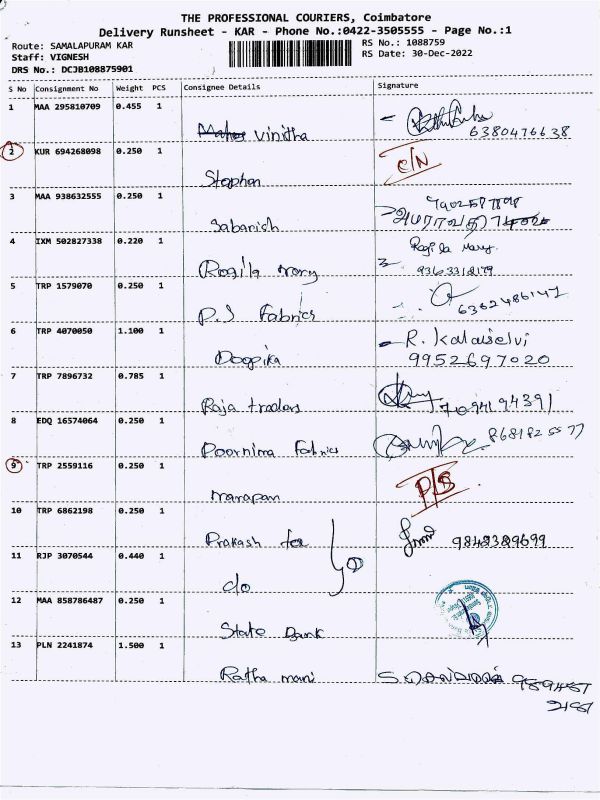 THE PROFESSIONAL COURIERS, Coimbatore
Delivery Runsheet - KAR - Phone No.:0422-3505555 - Page No.:1
Route: SAMALAPURAM KAR
RS No.: 1088759
Staff: VIGNESH
RS Date: 30-Dec-2022
DRS No.: DCJB108875901
S No Consignment No Weight PCS Consignee Details Signature
1 MAA 295810709 0.455 1
Vinitha 6380476638
2 KUR 694268098 0.250 1 C/N
Stephen
3 MAA 938632555 0.250 1
Sabanish அமராவதி
4 IXM 502827338 0.220 1 Rogila Mary
Rogila mary 9363318179
5 TRP 1579070 0.250 1
P.S Fabrics 6362486147
6 TRP 4070050 1.100 1 R. Kalaiselvi
Deepika 9952697020
7 TRP 7896732 0.785 1
Raja traders 7094194391
8 EDQ 16574064 0.250 1 8681825577
Poornima Fabrics
9 TRP 2559116 0.250 1 P/S
Narapan
10 TRP 6862198 0.250 1
Prakash tex 9843389699
11 RJP 3070544 0.440 1
do
12 MAA 858786487 0.250 1
State Bank
13 PLN 2241874 1.500 1
Ratha mani